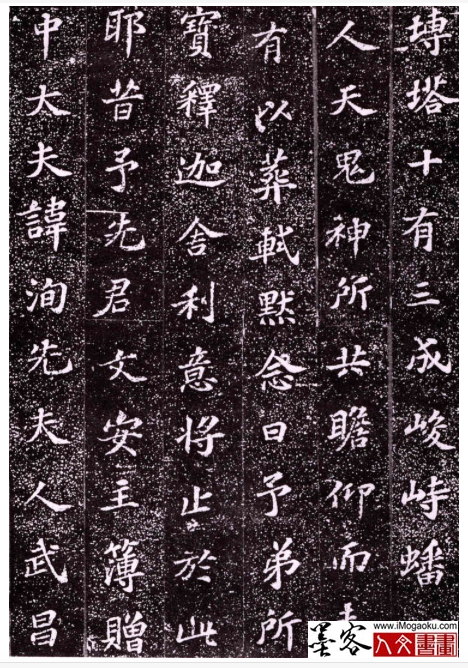 塼塔十有三成峻峙蟠
人天鬼神所共瞻仰而
有以葬軾默念曰予弟所
寶釋迦舍利意將止於此
耶昔予先君文安主簿贈
中大夫諱洵先夫人武昌
墨客
www.iMogaoku.com
人文書畫